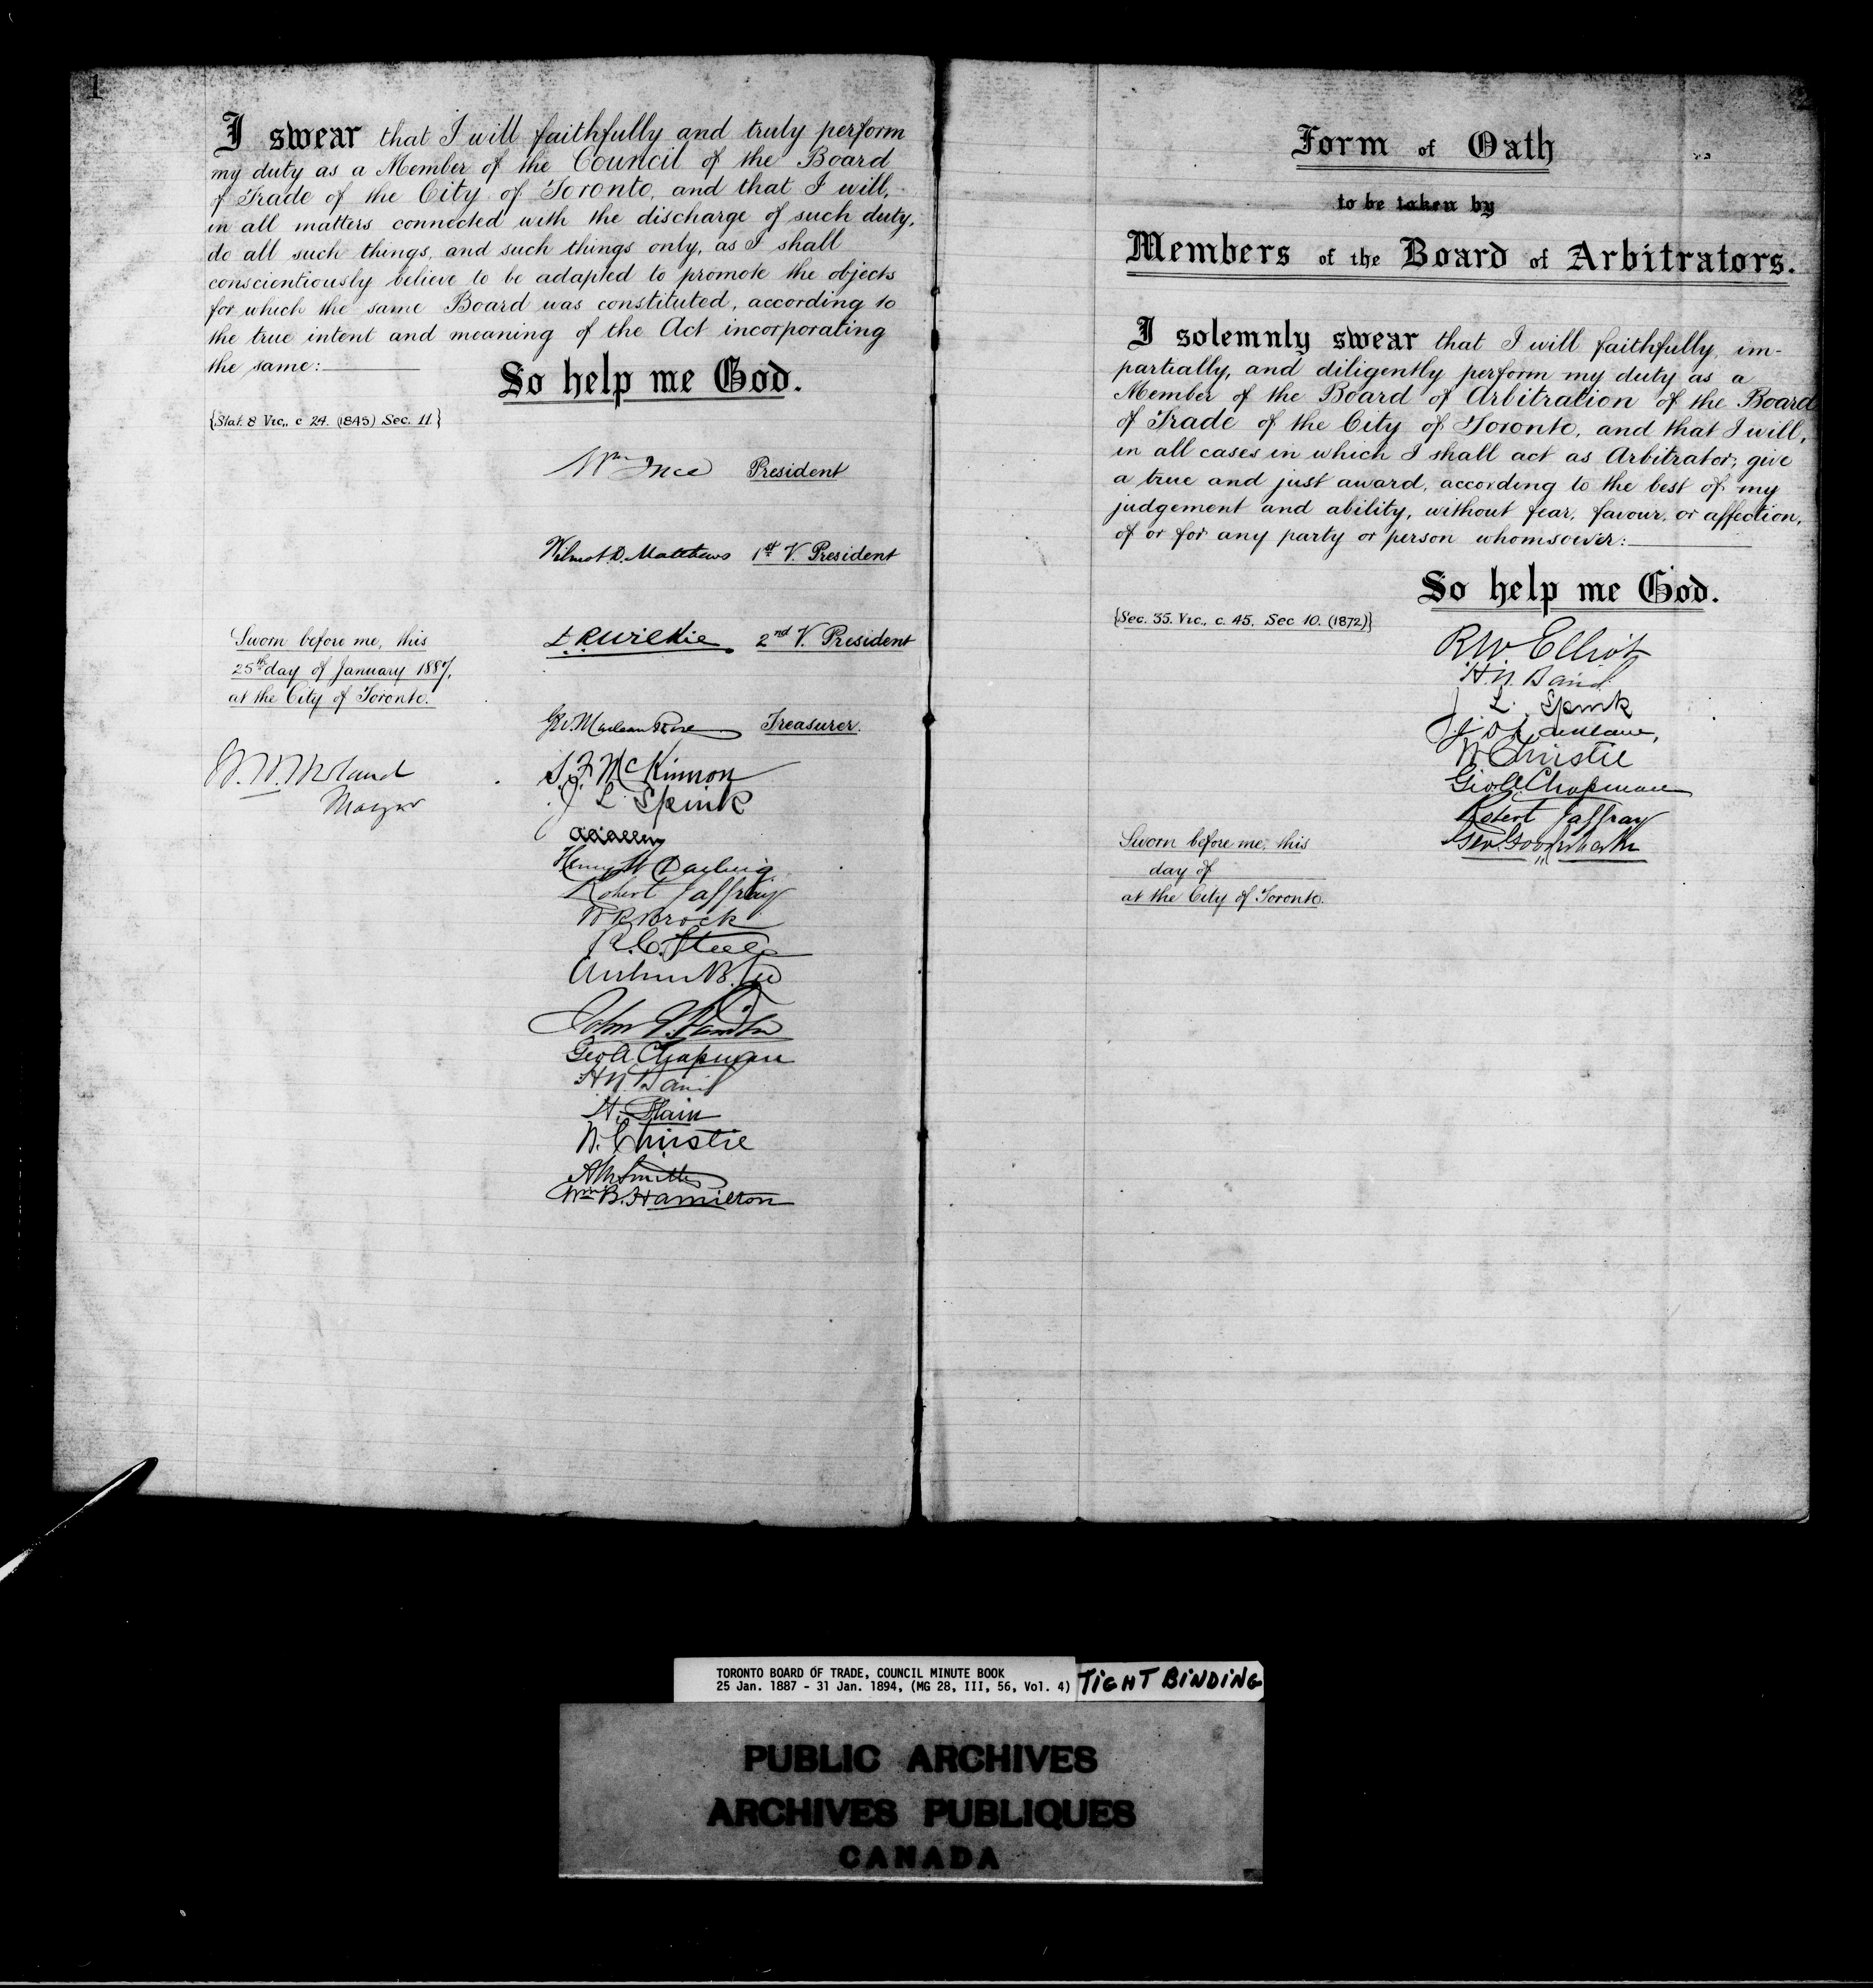 1
I swear that I will faithfully and truly perform
my duty as a Member of the Council of the Board
of Trade of the City of Toronto, and that I will,
in all matters connected with the discharge of such duty,
do all such things, and such things only, as I shall
conscientiously believe to be adapted to promote the objects
for which the same Board was constituted, according to
the true intent and meaning of the Act incorporating
the same:
So help me God.
{Stat. 8 Vic., c 24. (1845) Sec. 11.}
Wm Ince President
Wilmot D. Matthews 1st V. President
D.R. Wilkie 2nd V. President
Sworn before me, this
25th day of January 1887,
at the City of Toronto.
Treasurer.
Mayor
S. F. McKinnon
J L Spink
Henry W Darling
Robert Jaffray
W R Brock
R. C. Steele
Arthur B. Lee
John I. Davidson
Geo A. Chapman
H N Baird
H. Blain
W. Christie
A M Smith
Wm B. Hamilton
Form of Oath
to be taken by
Members of the Board of Arbitrators.
I solemnly swear that I will faithfully, im-
partially, and diligently perform my duty as a
Member of the Board of Arbitration of the Board
of Trade of the City of Toronto, and that I will,
in all cases in which I shall act as Arbitrator, give
a true and just award, according to the best of my
judgement and ability, without fear, favour, or affection,
of or for any party or person whomsoever:
So help me God.
{Sec. 35. Vic., c. 45. Sec 10. (1872)}
R W Elliot
H. N. Baird
J L. Spink
W Christie
Geo A. Chapman
Robert Jaffray
Geo. Gooderham
Sworn before me, this
day of
at the City of Toronto.
TORONTO BOARD OF TRADE, COUNCIL MINUTE BOOK
25 Jan. 1887 - 31 Jan. 1894, (MG 28, III, 56, Vol. 4)
TIGHT BINDING
PUBLIC ARCHIVES
ARCHIVES PUBLIQUES
CANADA